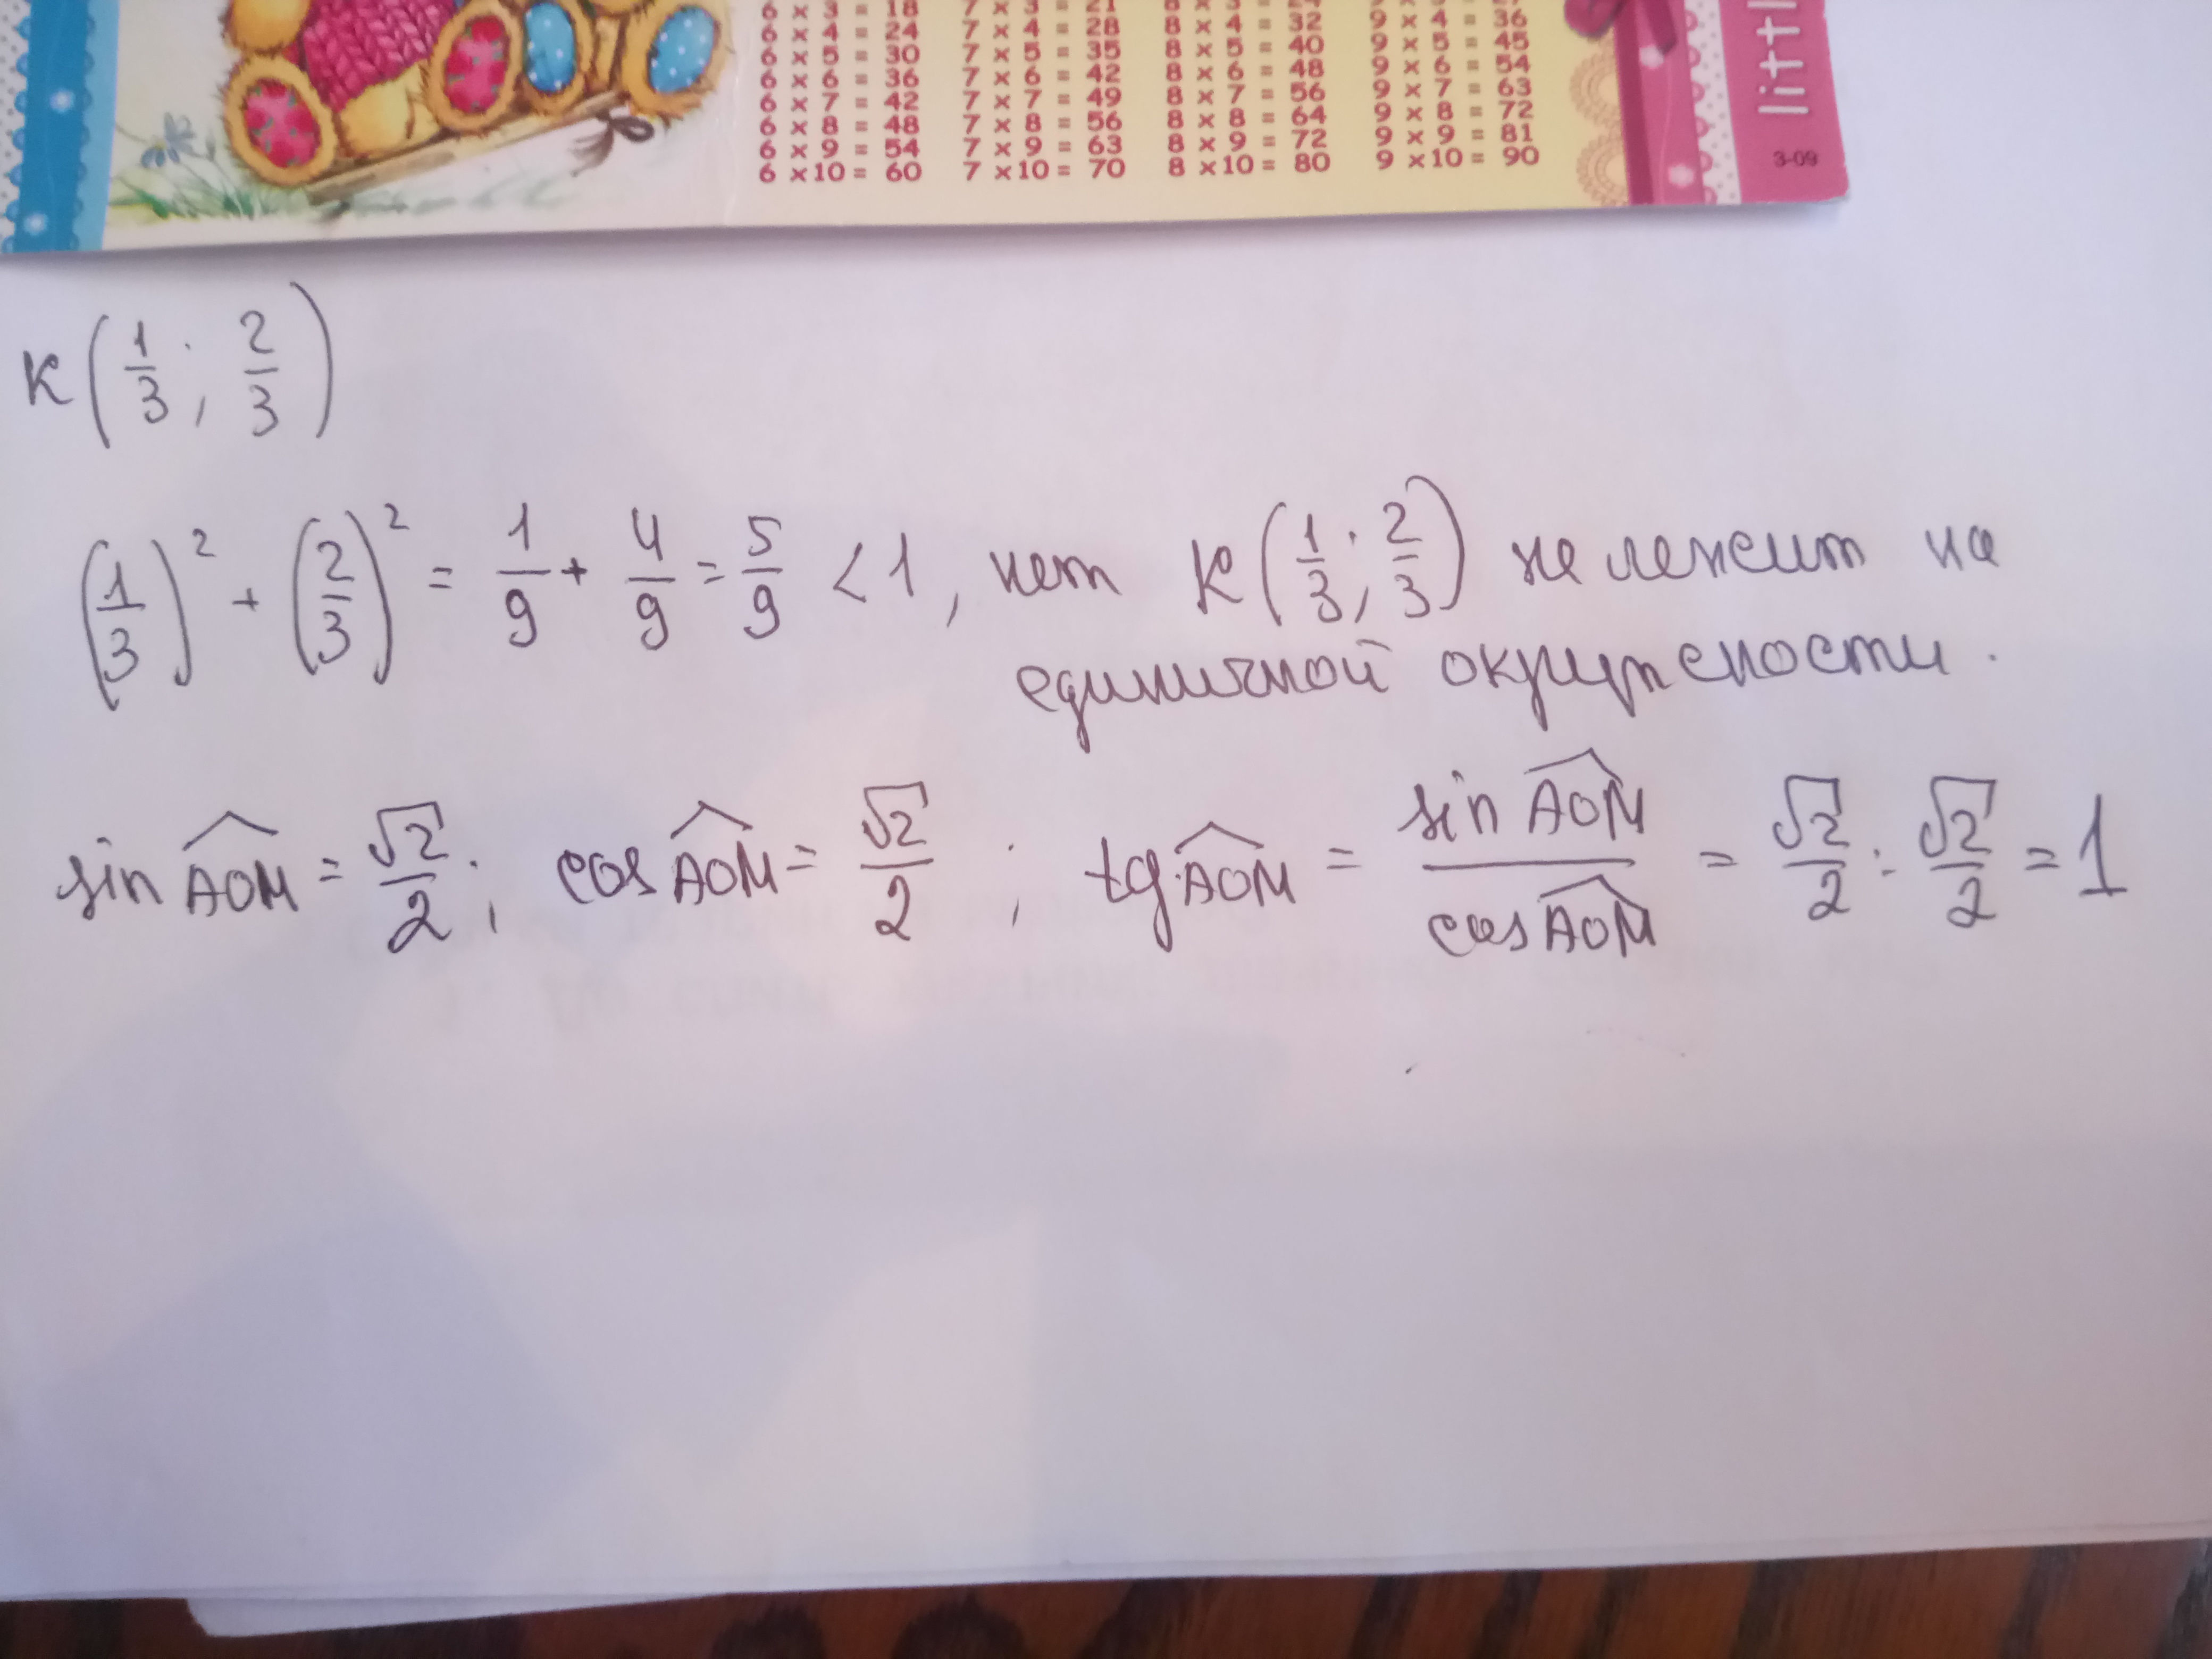 6 x 3 = 18 7 x 3 = 21 8 x 3 = 24
6 x 4 = 24 7 x 4 = 28 8 x 4 = 32 9 x 4 = 36
6 x 5 = 30 7 x 5 = 35 8 x 5 = 40 9 x 5 = 45
6 x 6 = 36 7 x 6 = 42 8 x 6 = 48 9 x 6 = 54
6 x 7 = 42 7 x 7 = 49 8 x 7 = 56 9 x 7 = 63
6 x 8 = 48 7 x 8 = 56 8 x 8 = 64 9 x 8 = 72
6 x 9 = 54 7 x 9 = 63 8 x 9 = 72 9 x 9 = 81
6 x 10 = 60 7 x 10 = 70 8 x 10 = 80 9 x 10 = 90
littl
3-09
K(1/3; 2/3)
(1/3)² + (2/3)² = 1/9 + 4/9 = 5/9 < 1, нет K(1/3; 2/3) не лежит на
единичной окружности.
sin AOM = √2/2; cos AOM = √2/2; tg AOM = sin AOM / cos AOM = √2/2 : √2/2 = 1